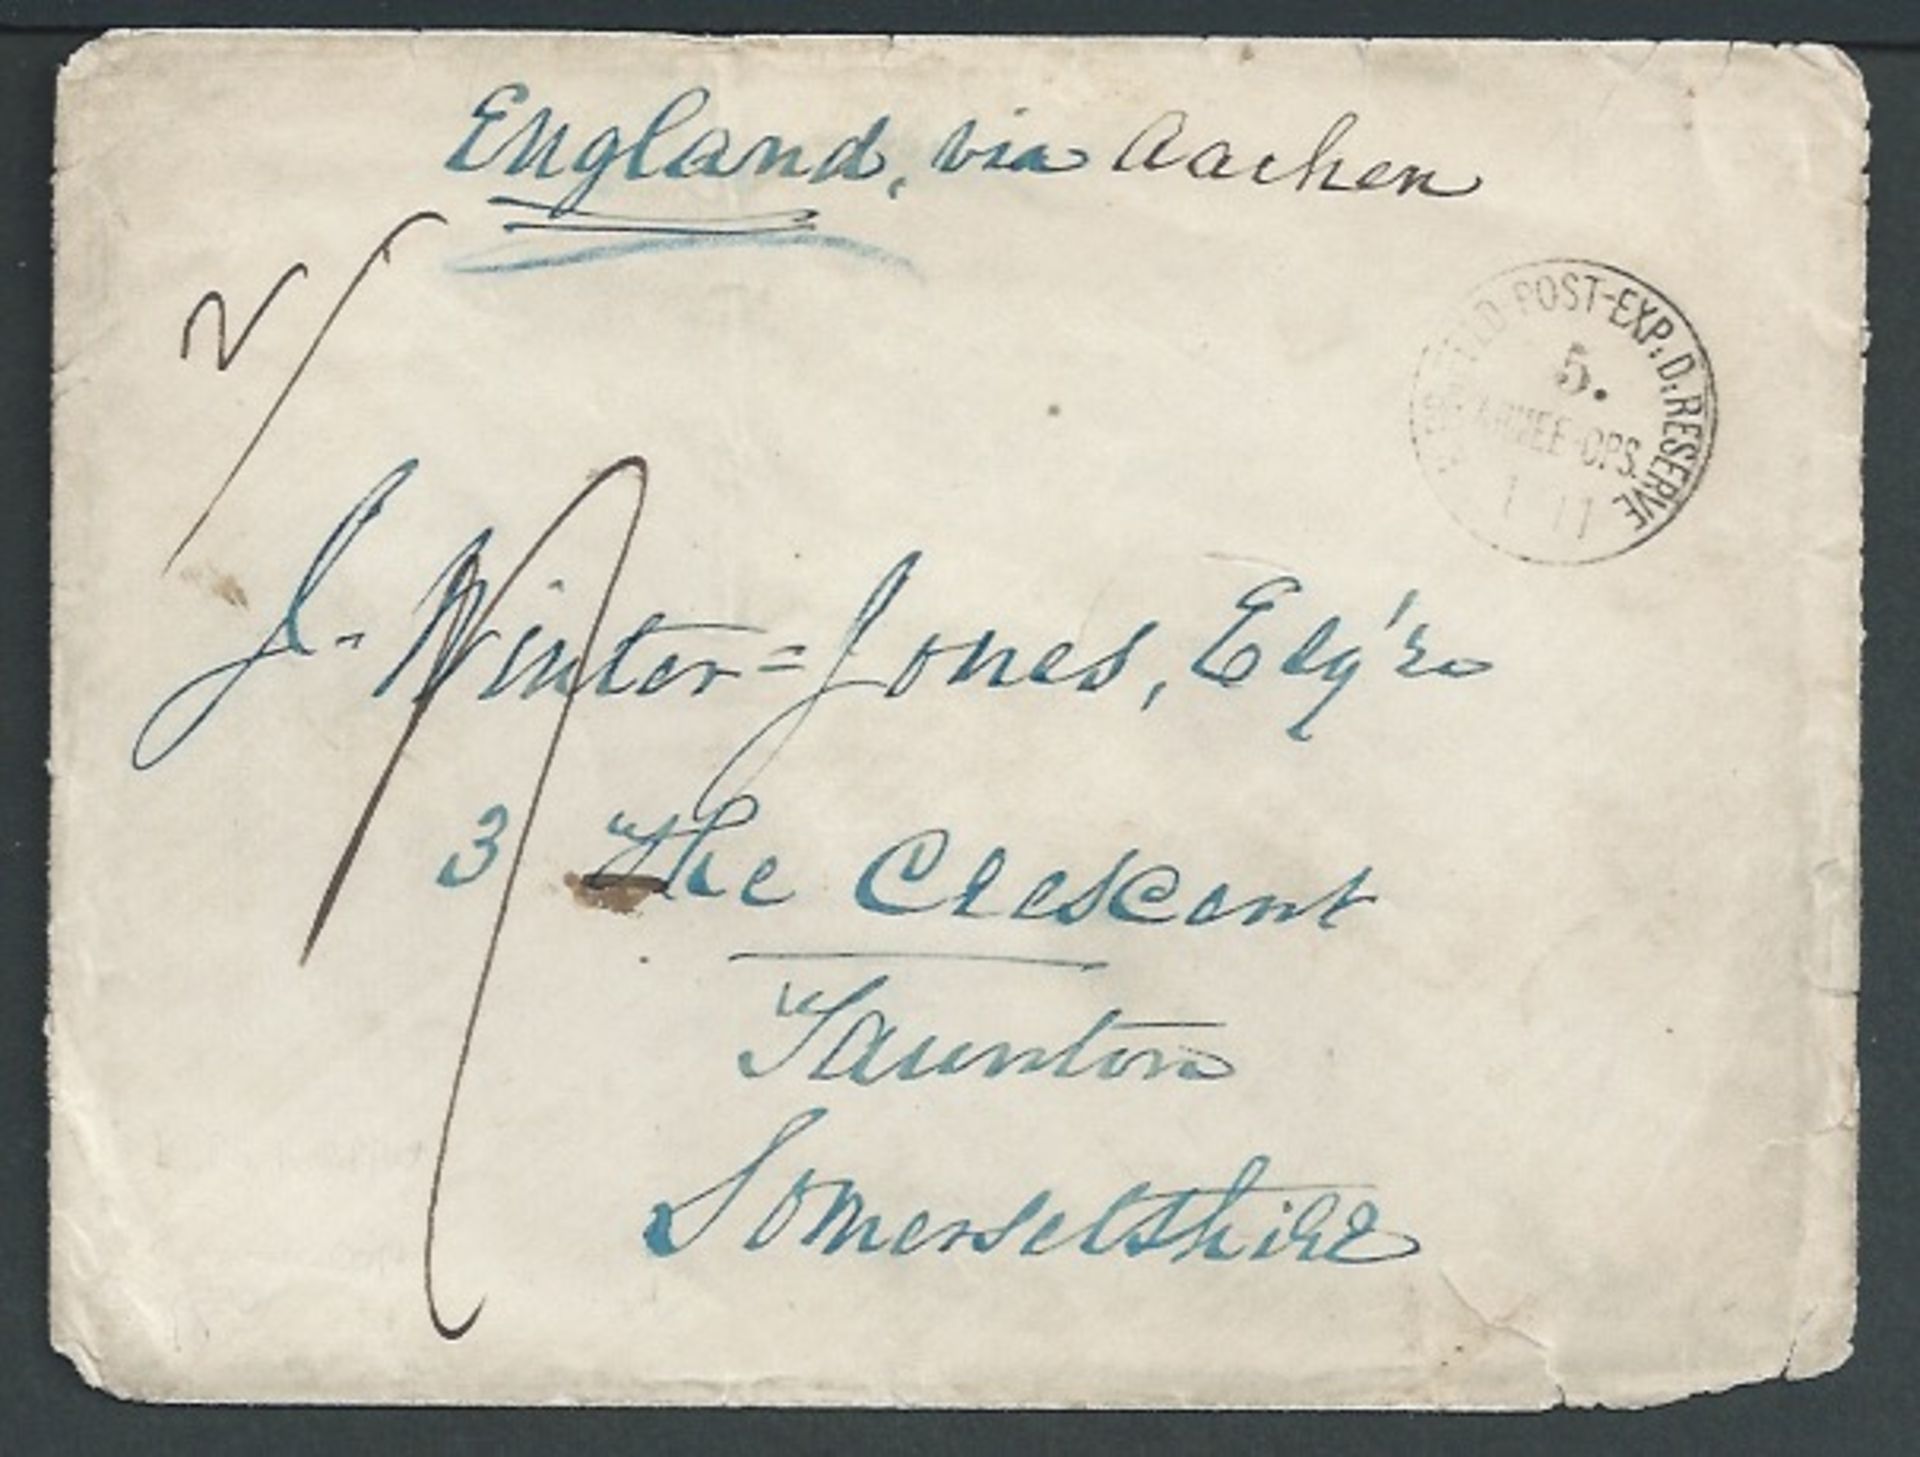 England, via Aachen
2/
FELD-POST-EXP. D. RESERVE
5.
ARMEE-CPS.
1 11
J. Winter=Jones, Esq're
3 The Crescent
Taunton
Somersetshire